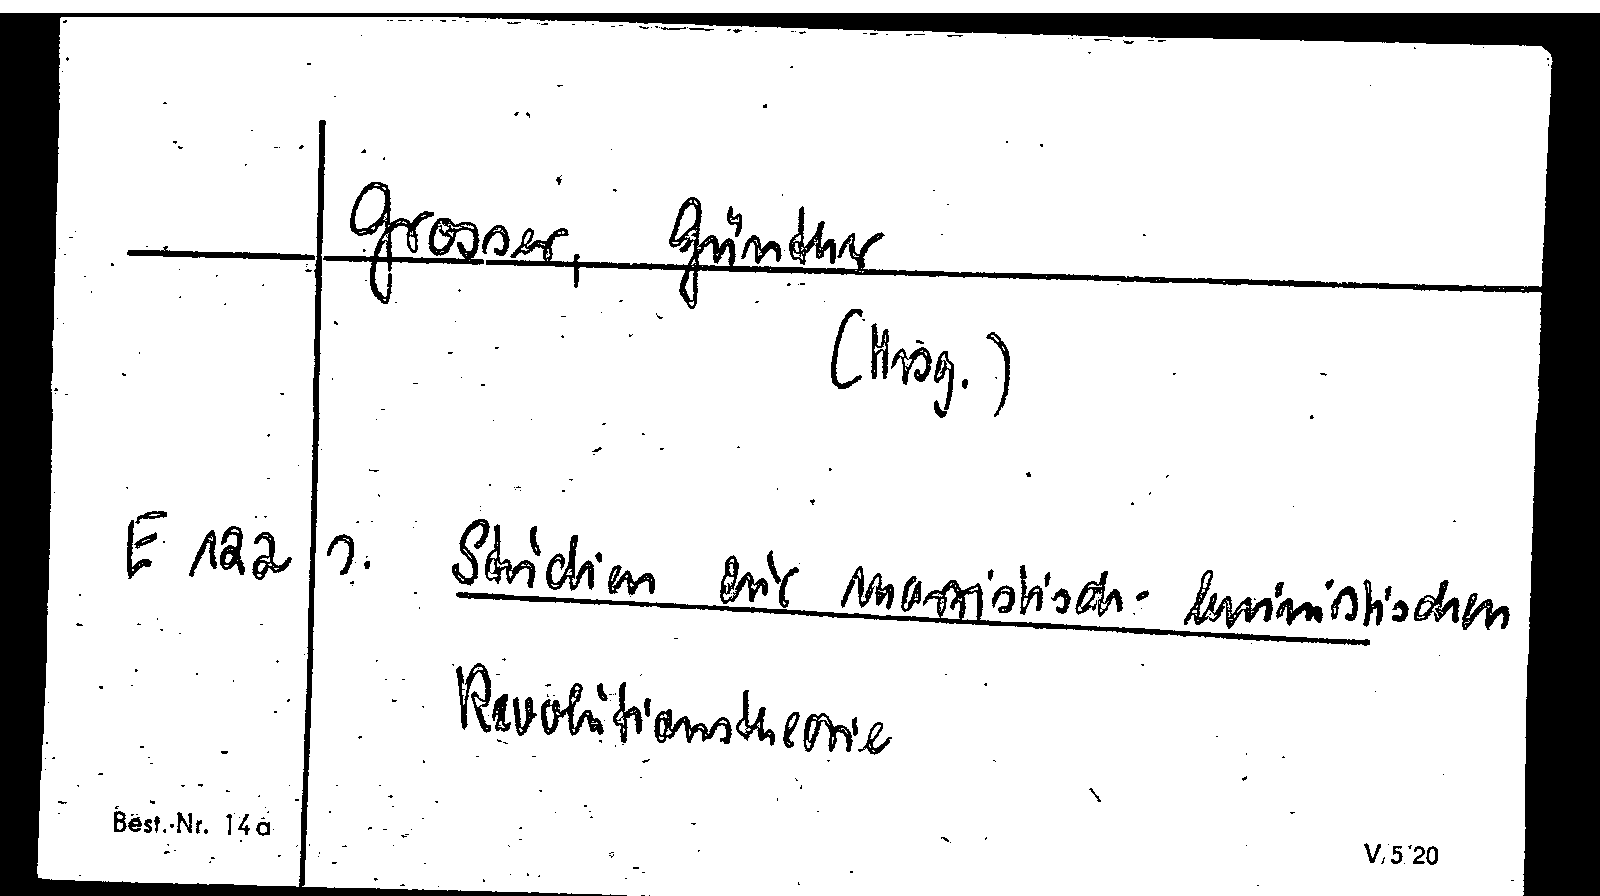 Grosser, Günther
(Hrsg.)
E 122 ). Studien zur marxistisch-leninistischen
Revolutionstheorie
Best.-Nr. 14a
V/5/20